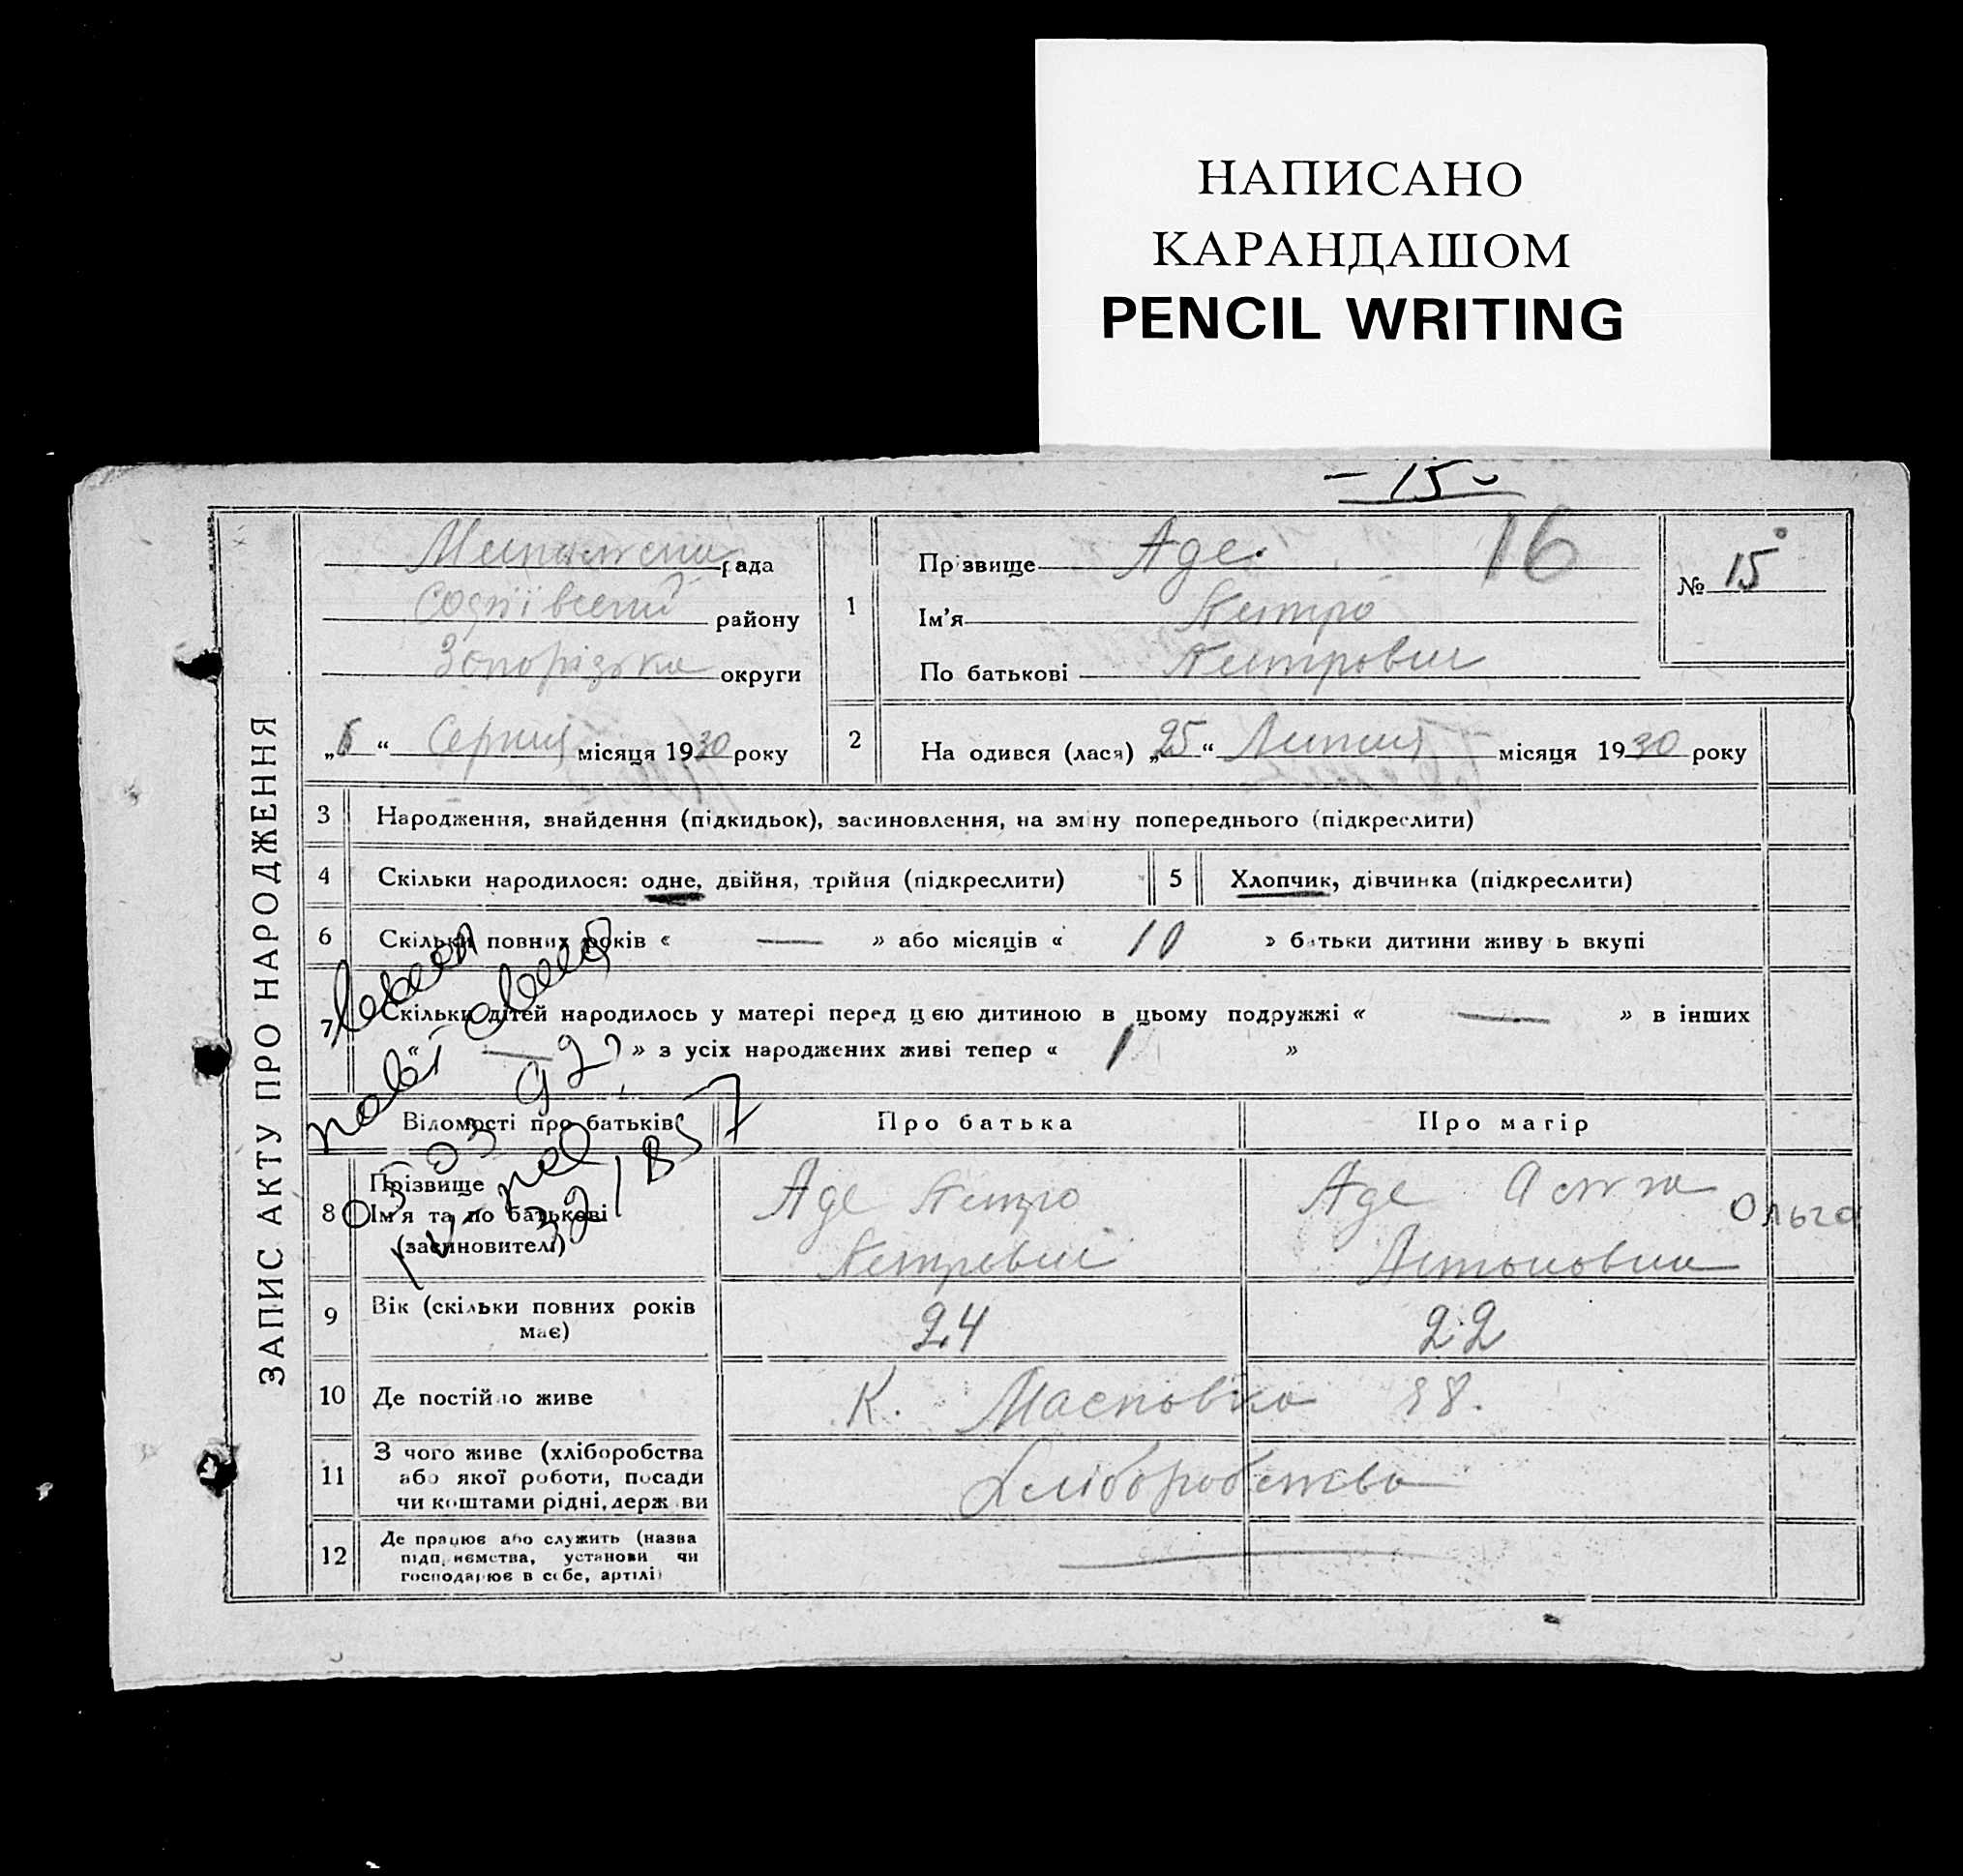 НАПИСАНО
КАРАНДАШОМ
PENCIL WRITING
- 15 -
ЗАПИС АКТУ ПРО НАРОДЖЕННЯ
рада
Софіївський району
Запорізька округи
„6“ Серпня місяця 1930 року
1
Прізвище Аде 16
Ім'я Петро
По батькові Петрович
№ 15
2 На одився (лася) „25“ Липня місяця 1930 року
3 Народження, знайдення (підкидьок), засиновлення, на зміну попереднього (підкреслити)
4 Скільки народилося: одне, двійня, трійня (підкреслити)
5 Хлопчик, дівчинка (підкреслити)
6 Скільки повних років « — » або місяців « 10 » батьки дитини живуть вкупі
7 Скільки дітей народилось у матері перед цією дитиною в цьому подружжі « — » в інших
« — » з усіх народжених живі тепер « 1 »
Відомості про батьків
Про батька
Про матір
8 Прізвище
Ім'я та по батькові
(засиновителі)
Аде Петро
Петрович
Аде Ольга
Антоновна
9 Вік (скільки повних років
має)
24
22
10 Де постійно живе
К. 38.
11 З чого живе (хліборобства
або якої роботи, посади
чи коштами рідні, держави
Хліборобство
12 Де працює або служить (назва
підприємства, установи чи
господарює в себе, артілі)